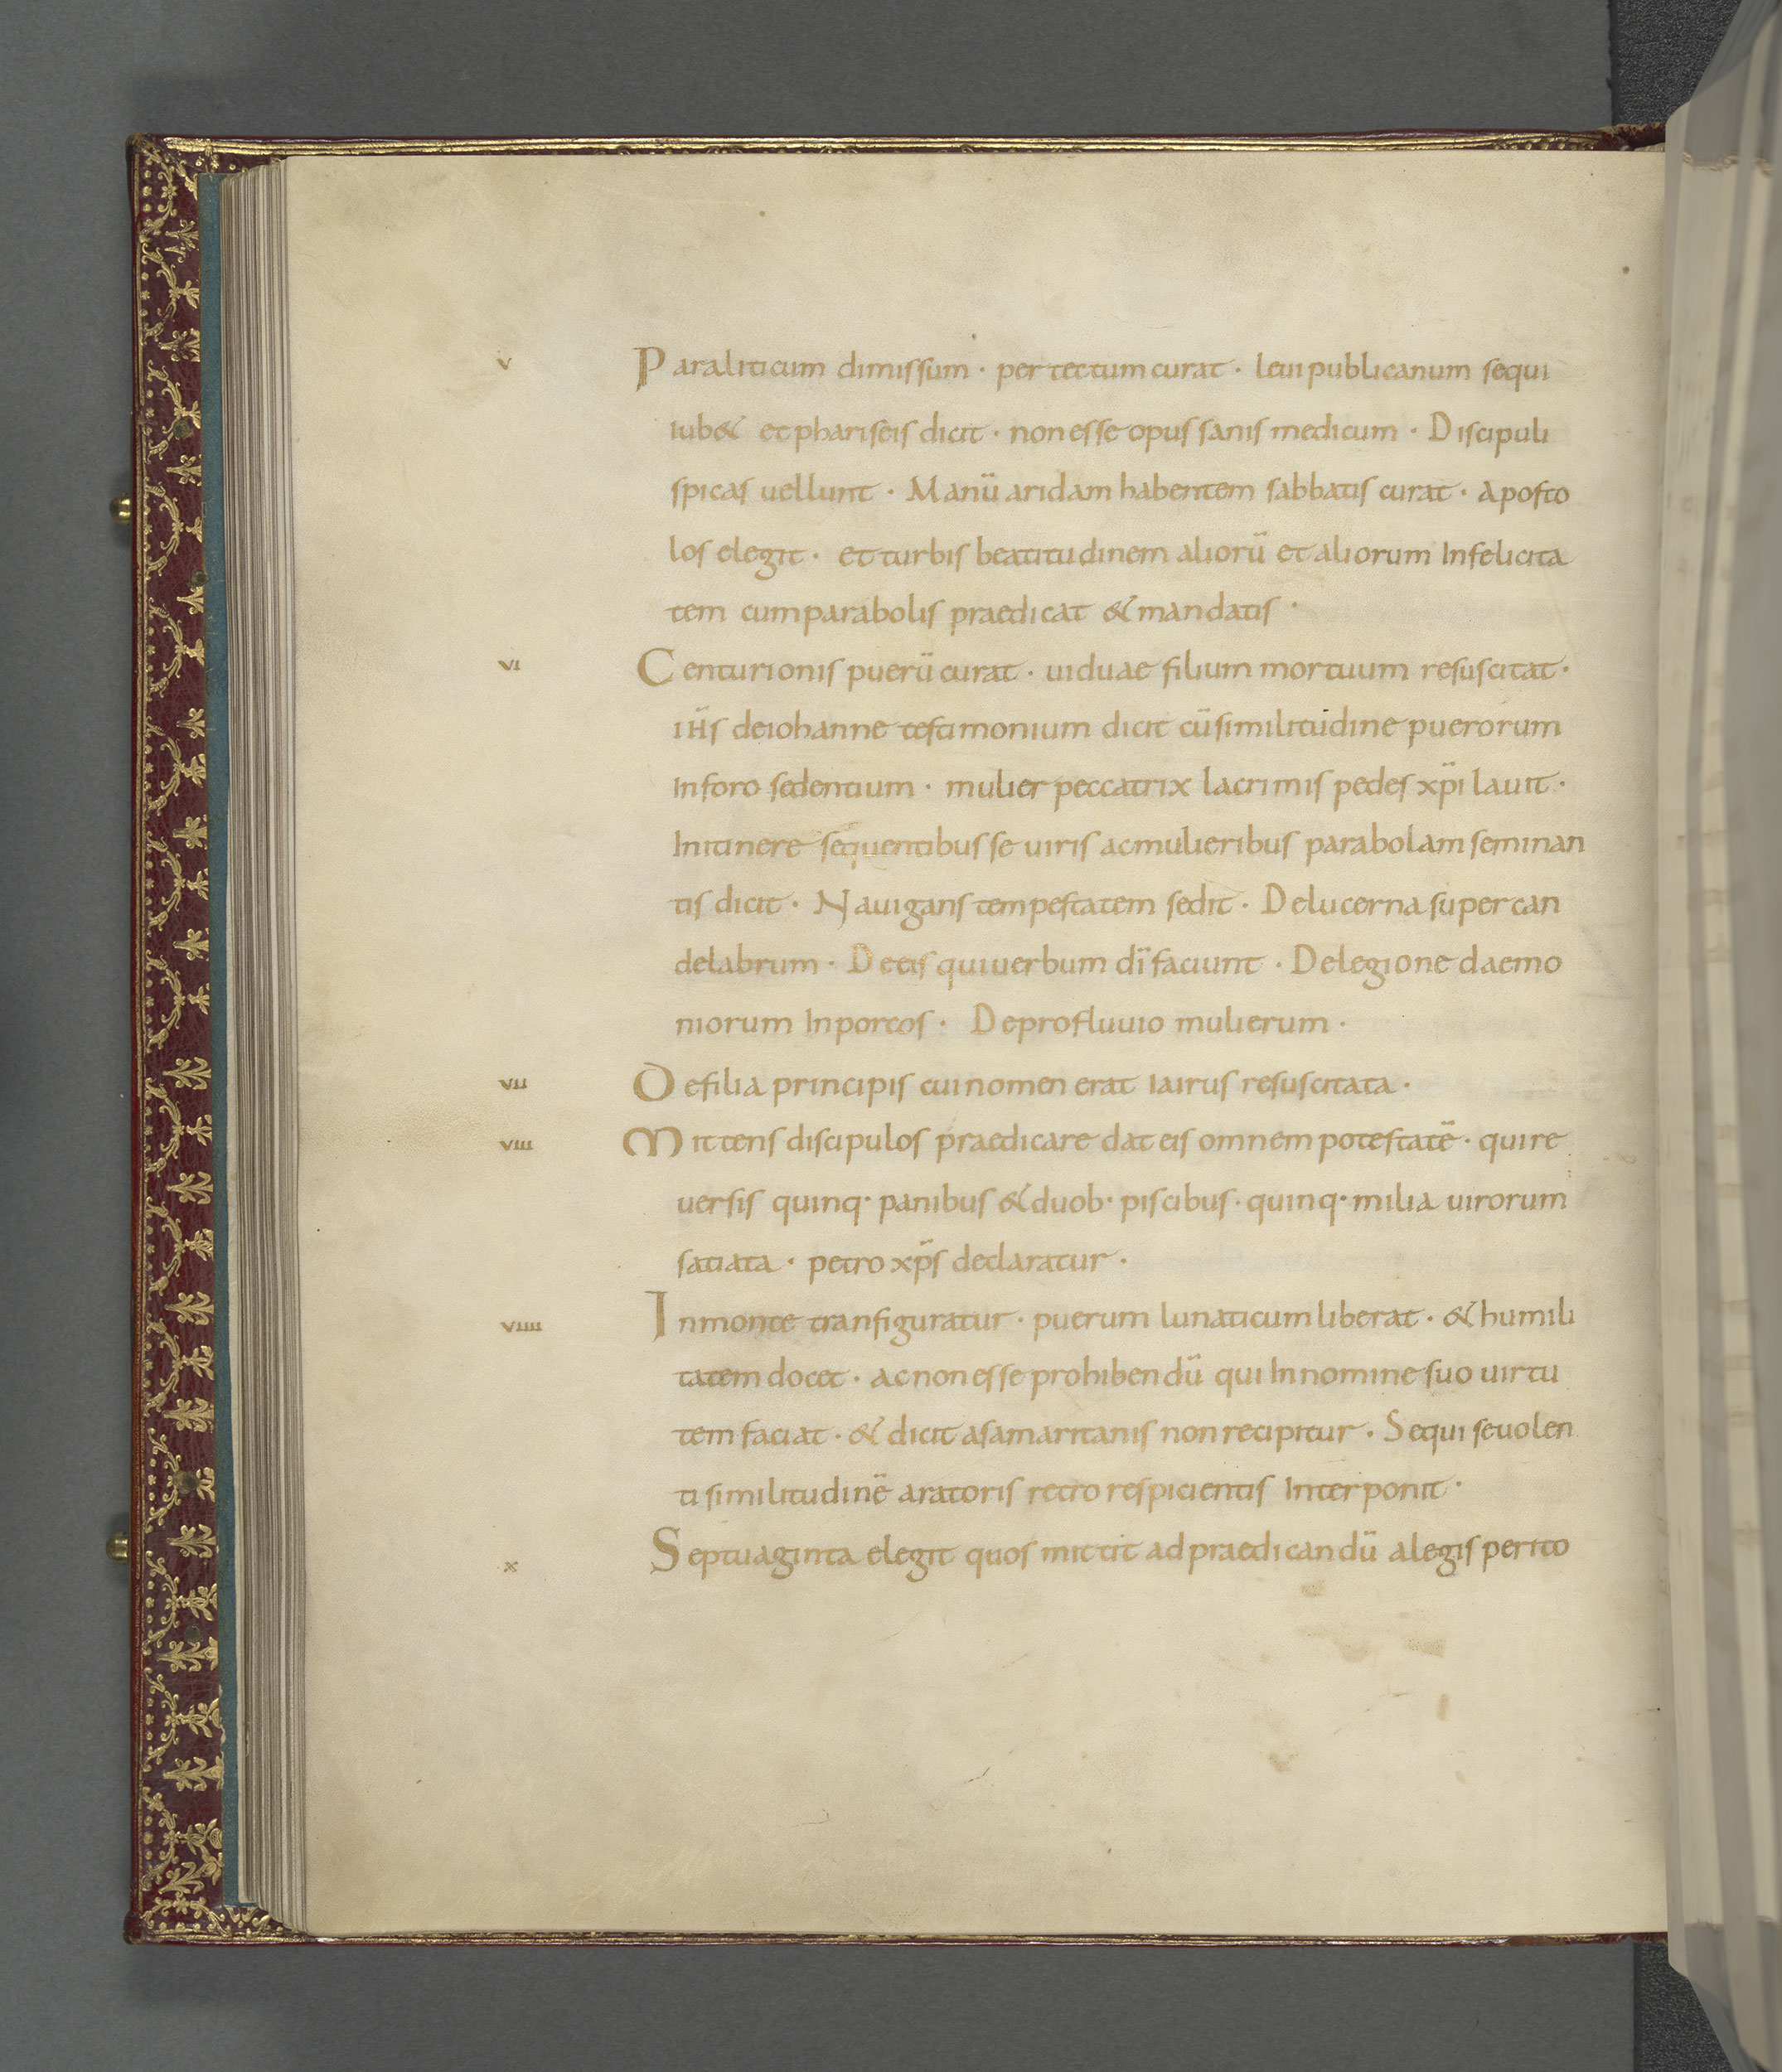 v Paraliticum dimissum · per tectum curat · leui publicanum sequi
iub& et phariseis dicit · non esse opus sanis medicum · Discipuli
spicas uellunt · Manū aridam habentem sabbatis curat · aposto
los elegit · et turbis beatitudinem aliorū et aliorum Infelicita
tem cum parabolis praedicat & mandatis ·
vi Centurionis puerū curat · uiduae filium mortuum resuscitat ·
ih̄s de iohanne testimonium dicit cū similitudine puerorum
In foro sedentium · mulier peccatrix lacrimis pedes xp̄i lauit ·
In itinere sequentibus se uiris ac mulieribus parabolam seminan
tis dicit · Nauigans tempestatem sedit · De lucerna super can
delabrum · De eis qui uerbum dī faciunt · De legione daemo
niorum In porcos · De profluuio mulierum ·
vii De filia principis cui nomen erat iairus resuscitata ·
viii Mittens discipulos praedicare dat eis omnem potestatē · qui re
uersis quinq· panibus & duob· piscibus · quinq· milia uirorum
satiata · petro xp̄s declaratur ·
viiii In monte tranfiguratur · puerum lunaticum liberat · & humili
tatem docet · ac non esse prohibendū qui In nomine suo uirtu
tem faciat · & dicit a samaritanis non recipitur · Sequi se uolen
ti similitudinē aratoris retro respicientis Interponit ·
x Septuaginta elegit quos mittit ad praedicandū a legis perito